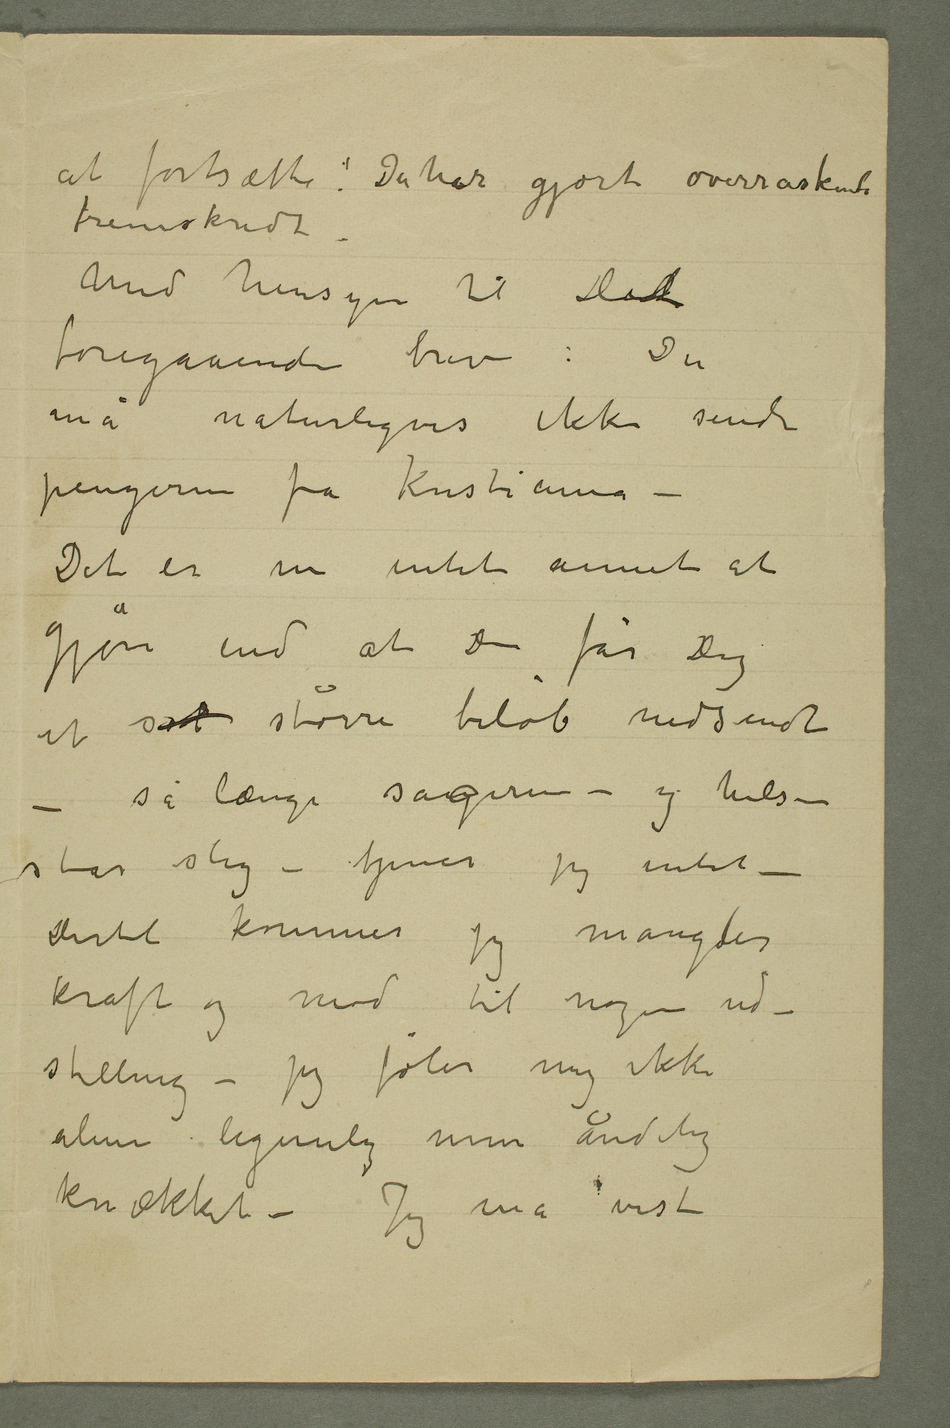 at fortsætte! Du har gjort overraskende
fremskridt.
Med hensyn til Ded
foregaaende brev: Du
må naturligvis ikke sende
pengerne fra Kristiania –
Det er nu intet annet at
gjøre end at Du får Dig
et større beløb nedsendt
– så længe sagerne – og helsen
står slig – tjener jeg intet –
Dertil kommer jeg mangler
kraft og mod til nogen ud–
stilling – jeg føler mig ikke
alene legemlig men åndelig
knækket – Jeg må vist